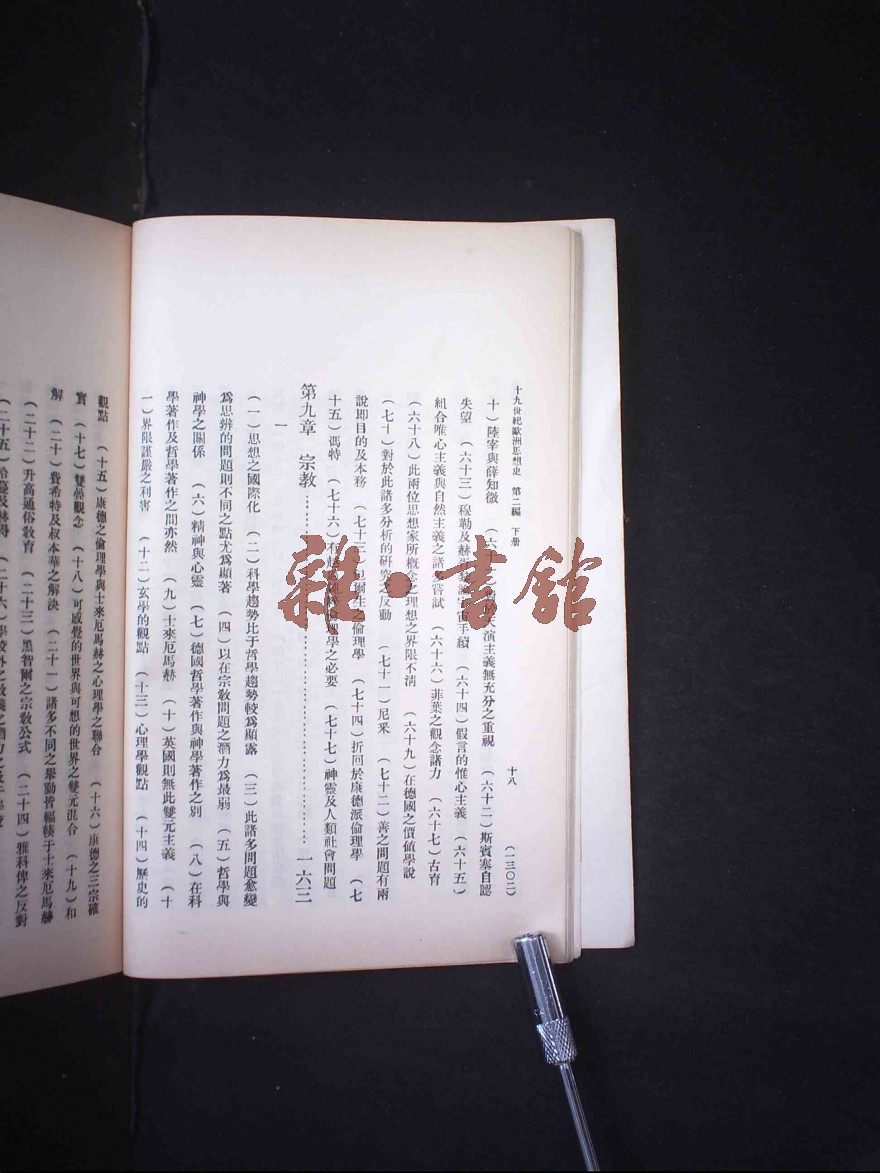 十九世紀歐洲思想史 第二編 下册 十八 (一三〇二)
十)陸宰與薛知微 (六十 天演主義無充分之重視 (六十二)斯賓塞自認
失望 (六十三)穆勒及赫 手續 (六十四)假言的惟心主義 (六十五)
組合唯心主義與自然主義之諸 嘗試 (六十六)菲葉之觀念諸力 (六十七)古育
(六十八)此兩位思想家所概念之理想之界限不清 (六十九)在德國之價値學說
(七十)對於此諸多分析的研究之反動 (七十一)尼釆 (七十二)善之問題有兩
說卽目的及本務 (七十三) 爾生之倫理學 (七十四)折回於康德派倫理學 (七
十五)馮特 (七十六)有 倫理學之必要 (七十七)神靈及人類社會問題
第九章 宗教 一六三
一
(一)思想之國際化 (二)科學趨勢比于哲學趨勢較爲顯露 (三)此諸多問題愈變
爲思辨的問題則不同之點尤爲顯著 (四)以在宗敎問題之潛力爲最弱 (五)哲學與
神學之關係 (六)精神與心靈 (七)德國哲學著作與神學著作之別 (八)在科
學著作及哲學著作之間亦然 (九)士來厄馬赫 (十)英國則無此雙元主義 (十
一)界限謹嚴之利害 (十二)玄學的觀點 (十三)心理學觀點 (十四)歷史的
觀點 (十五)康德之倫理學與士來厄馬赫之心理學之聯合 (十六)康德之三宗確
實 (十七)雙疊觀念 (十八)可感覺的世界與可想的世界之雙元混合 (十九)和
解 (二十)費希特及叔本華之解決 (二十一)諸多不同之舉動皆輻輳于士來厄馬赫
(二十二)升高通俗敎育 (二十三)黑智爾之宗敎公式 (二十四)雅科俾之反對
(二十五) (二十六)學校外之敎義之潛力
雜·書館